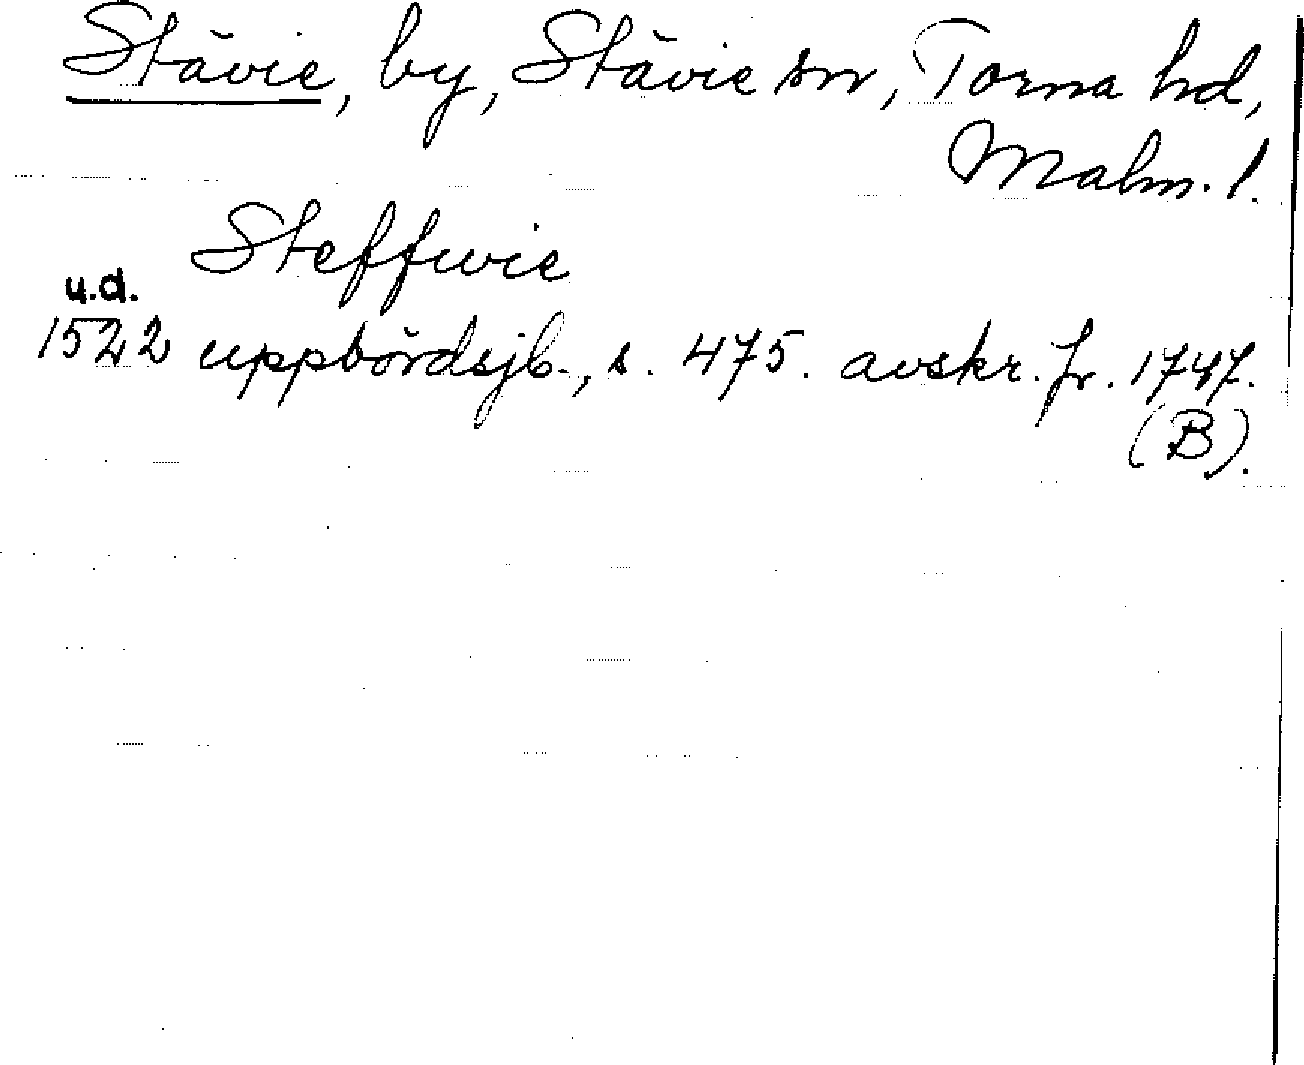 Stävie, by, Stävie sn, Torna hd,
Malm. l.
Steffwie
u.d.
1522 uppbördsjb., s. 475. avskr. fr. 1747.
(B).